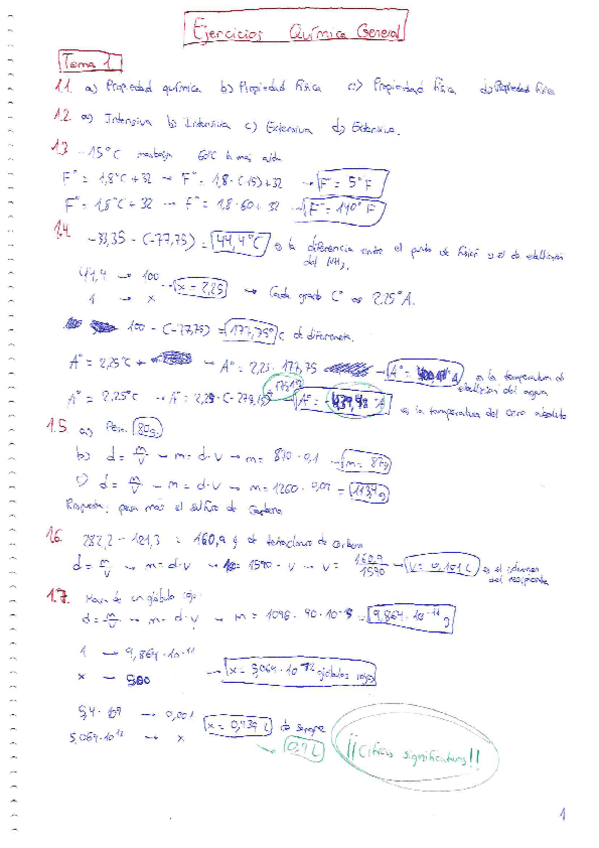 Ejercicios Química General
Tema 1
1.1. a) Propiedad química b) Propiedad física c) Propiedad física d) Propiedad física
1.2. a) Intensiva b) Intensiva c) Extensiva d) Extensiva.
1.3 -15°C 60°C la más alta
F° = 1,8°C + 32 → F° = 1,8·(-15)+32 → F° = 5°F
F° = 1,8°C + 32 → F° = 1,8·60+32 → F° = 140°F
1.4.
-33,35 - (-77,75) = 44,4°C es la diferencia entre el punto de fusión y el de ebullición
del NH3.
44,4 → 100
1 → x
x = 2,25 → Cada grado C° es 2,25°A.
100 - (-77,75) = 177,75°C de diferencia.
A° = 2,25°C + → A° = 2,25 · 177,75 → A° = es la temperatura de
ebullición del agua
A° = 2,25°C → A° = 2,25·(-273,15) → A° = es la temperatura del cero absoluto
1.5 a) Pesa 85g
b) d = m/v → m = d·v → m = 870·0,1 → m = 87g
c) d = m/v → m = d·v → m = 1260·0,09 = 113,4g
Respuesta: pesa más el sulfuro de Carbono
1.6. 282,2 - 121,3 = 160,9 g de tetracloruro de carbono
d = m/v → m = d·v → = 1590·v → v = 160,9/1590 → V = 0,101 L es el volumen
del recipiente
1.7. Masa de un glóbulo rojo:
d = m/v → m = d·v → m = 1096·90·10⁻¹⁵ = 9,864·10⁻¹¹ g
1 → 9,864·10⁻¹¹
x → 500
x = 5,069·10¹² glóbulos rojos
5,4·10⁹ → 0,001
5,069·10¹² → x
x = 0,939 L de sangre
→ 0,9 L
¡¡Cifras significativas!!
1